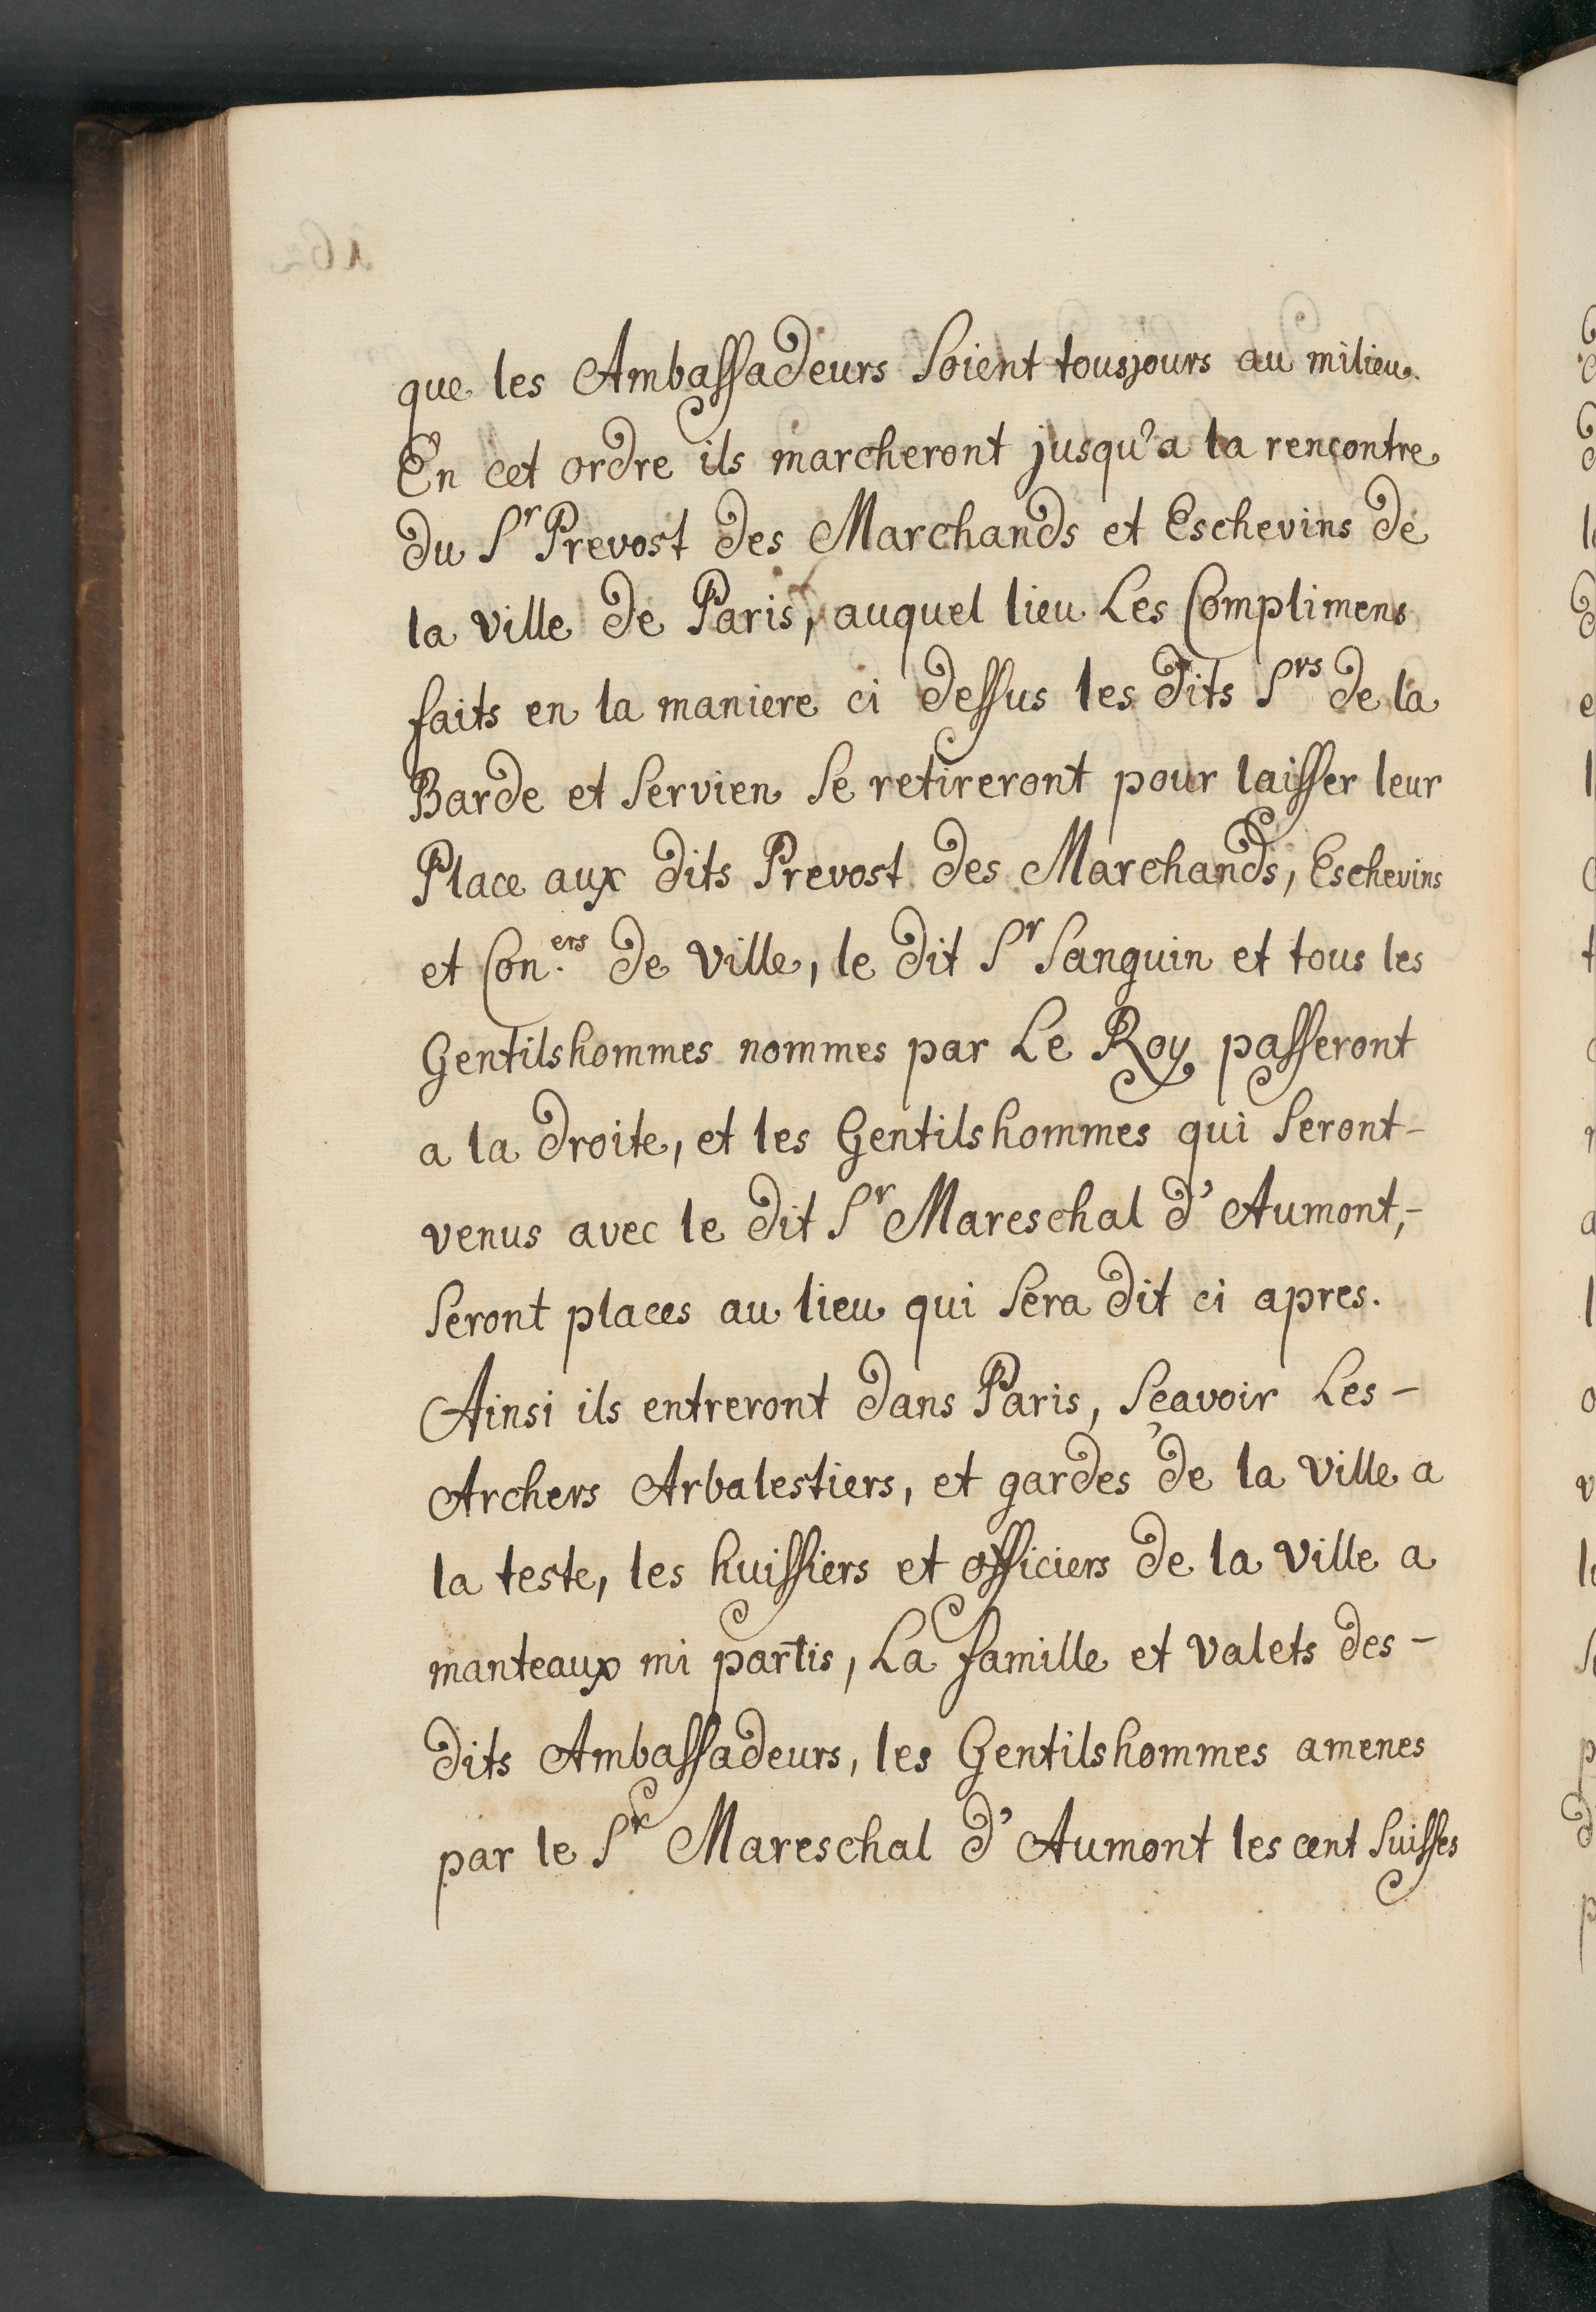 que les Ambassadeurs soient tousjours au milieu.
En cet ordre ils marcheront jusqu'a la rencontre
du Sr Prevost des Marchands et Eschevins de
la ville de Paris, auquel lieu Les Complimens
faits en la maniere ci dessus les dits Srs de la
Barde et Servien se retireront pour laisser leur
Place aux dits Prevost des Marchands, Eschevins
et Con.ers de ville, le dit Sr Sanguin et tous les
Gentilshommes nommes par Le Roy passeront
a la droite, et les Gentilshommes qui seront-
venus avec le dit Sr Mareschal d'Aumont,-
seront places au lieu qui sera dit ci apres.
Ainsi ils entreront dans Paris, sçavoir Les-
Archers Arbalestiers, et gardes de la ville a
la teste, les huissiers et officiers de la ville a
manteaux mi partis, La famille et valets des-
dits Ambassadeurs, les Gentilshommes amenes
par le Sr Mareschal d'Aumont les cent suisses